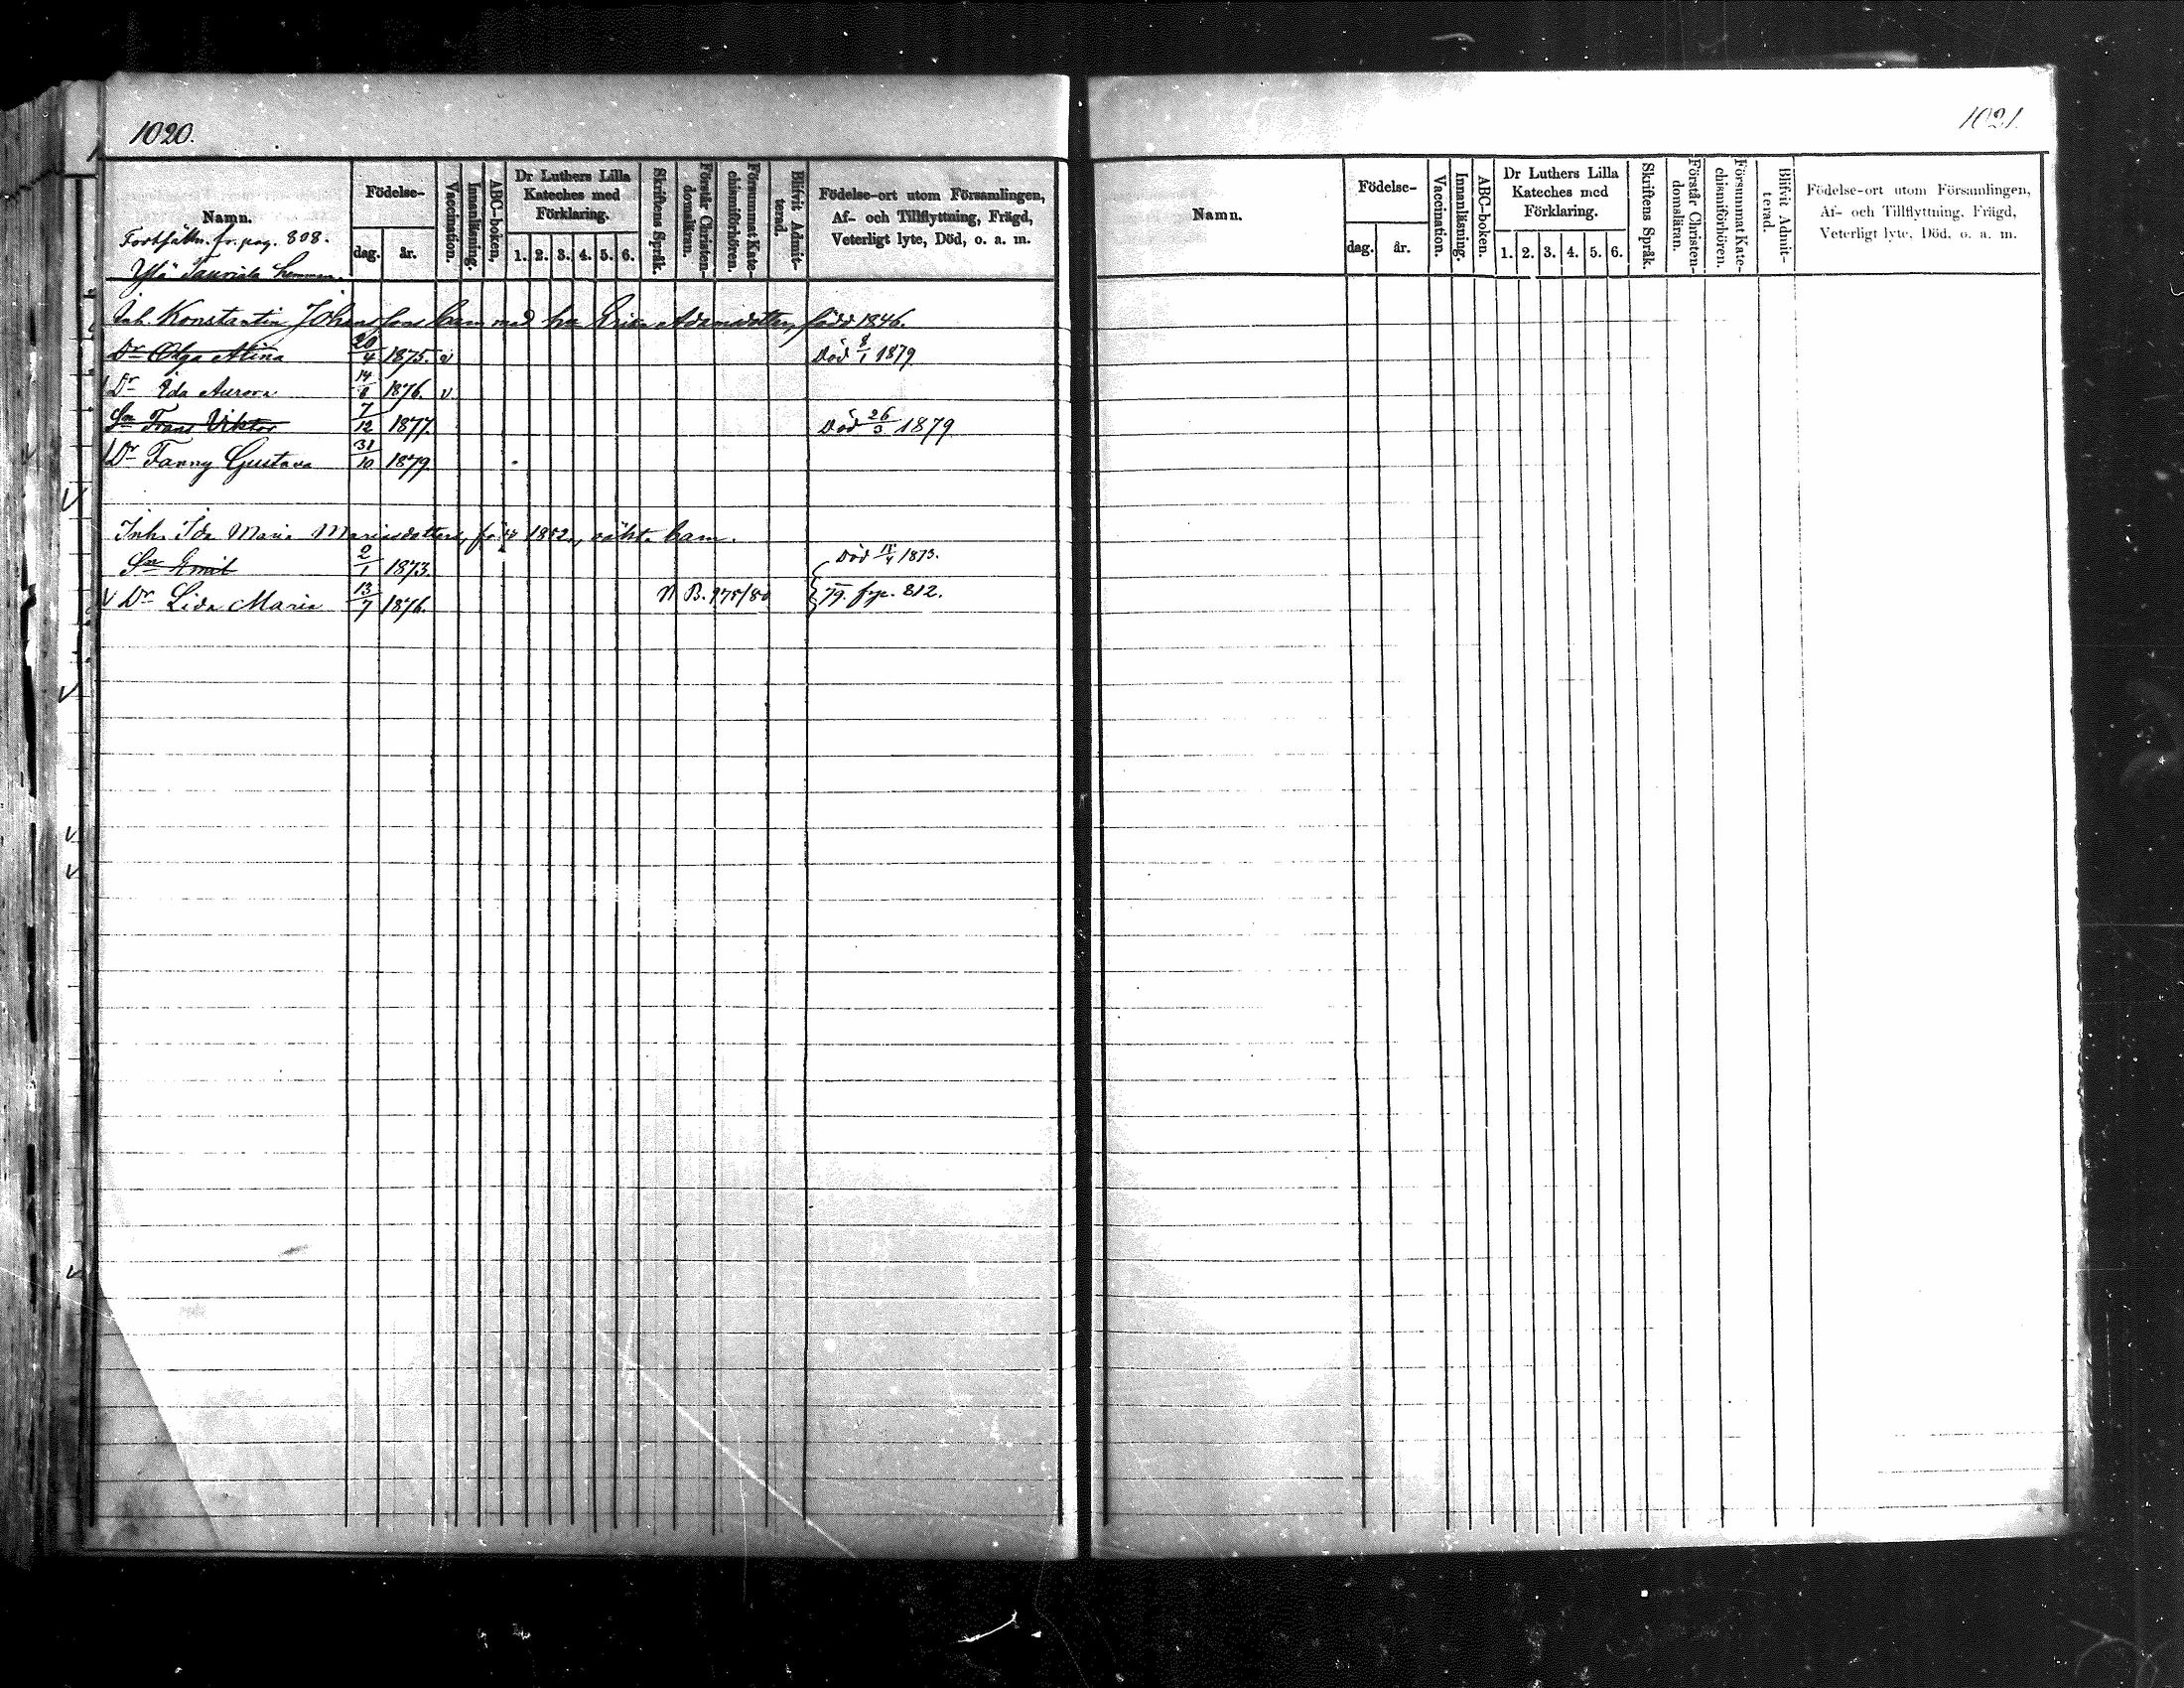 1020.
Namn.
Födelse-
dag.
år.
Vaccination.
Innanläsning.
ABC-boken.
Dr Luthers Lilla
Kateches med
Förklaring.
1. 2. 3. 4. 5. 6.
Skriftens Språk.
Förstår Christen-
domsläran.
Försummat Kate-
chismiförhören.
Blifvit Admit-
terad.
Födelse-ort utom Församlingen,
Af- och Tillflyttning, Frägd,
Veterligt lyte, Död, o. a. m.
Fortsättn. fr. pag. 808.
Ylä Tauriala hemman.
Inh. Konstantin Johanssons barn med hu Erika Adamsdotter, född 1846.
Dr Olga Alina 20/4 1875. v Död 8/1 1879
Dr Ida Aurora 14/6 1876. v
Sn Frans Viktor 7/12 1877. Död 26/3 1879
Dr Fanny Gustava 31/10 1879
Inh. Ida Maria Mariasdotters, född 1852, oäkta barn.
Sn Emil 2/1 1873. Död 1873.
V Dr Lida Maria 13/7 1876. N B. 178/80 Tg. fr p. 812.
1021.
Namn.
Födelse-
dag.
år.
Vaccination.
Innanläsning.
ABC-boken.
Dr Luthers Lilla
Kateches med
Förklaring.
1. 2. 3. 4. 5. 6.
Skriftens Språk.
Förstår Christen-
domsläran.
Försummat Kate-
chismiförhören.
Blifvit Admit-
terad.
Födelse-ort utom Församlingen,
Af- och Tillflyttning, Frägd,
Veterligt lyte, Död, o. a. m.